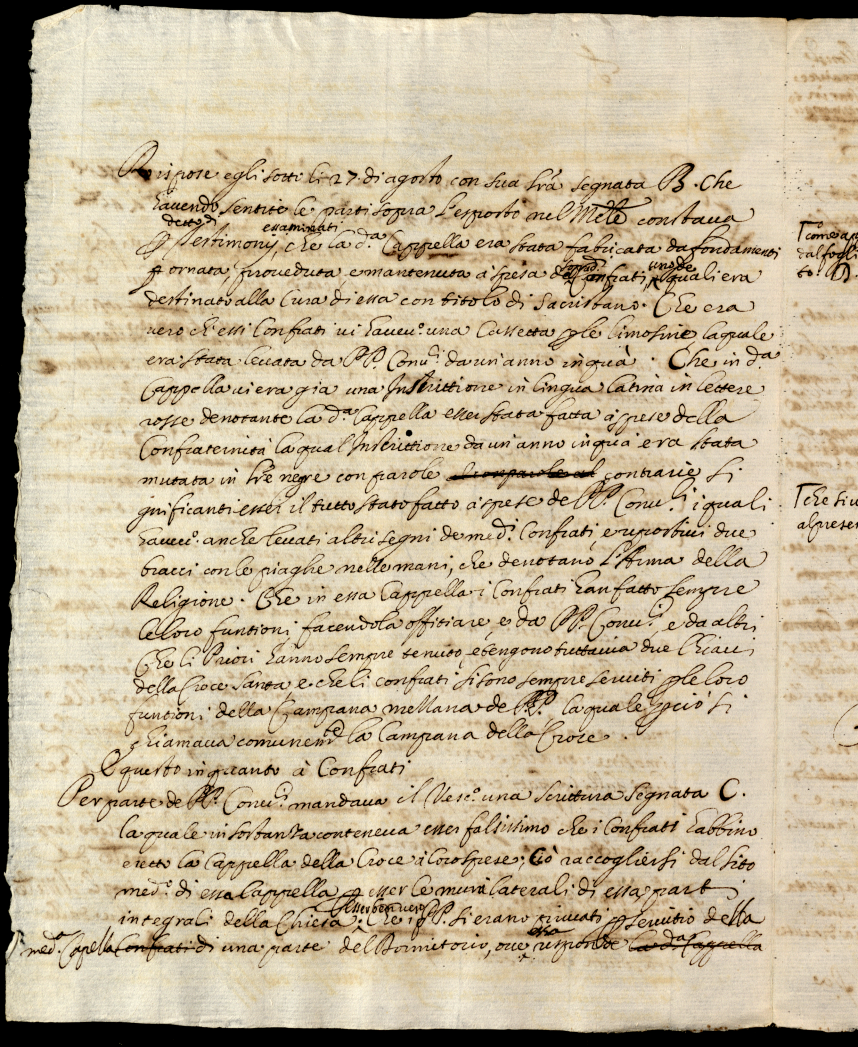 Rispose egli sotto li 27 di agosto con sua lrã segnata B. Che
havendo sentite le parti sopra l'esposto nel Mele constava
detto dì
essaminati
p Testimonij, che la d.a Cappella era stata fabricata da fondamenti
ornata, proveduta, e mantenuta à spesa de Confrati uno de quali era
destinato alla Cura di essa con titolo di Sacristano. Che era
vero ch'essi Confrati vi havev.o una Cassetta p le limosine, la quale
era stata levata da PP. Conv.li da un'anno in quà. Che in d.a
Cappella vi era gia una Inscrittione in lingua latina in lettere
rosse denotante la d.a Cappella esser stata fatta à spese della
Confraternità la qual Inscrittione da un'anno in quà era stata
mutata in lrẽ negre con parole contrarie si
gnificanti esser il tutto stato fatto à spese de PP. Conv.li i quali
havev.o anche levati altri segni de med.i Confrati, e ripostivi due
bracci con le piaghe nelle mani, che denotano l'Arma della
Religione. Che in essa Cappella i Confrati han fatto sempre
le loro funtioni facendola offitiare, e da PP. Conv.li e da altri
Che li Priori hanno sempre tenuto, e tengono tuttavia due Chiavi
della Croce Santa, e che li confrati si sono sempre serviti p le loro
funtioni della Campana mellana de PP. la quale p ciò si
chiamava comunem.te la Campana della Croce.
E questo in quanto à Confrati
Per parte de PP. Conv.li mandava il Vesc.o una scrittura segnata C.
la quale in sostanza conteneva esser falsissimo che i Confrati habbino
eretto la Cappella della Croce à loro spese, Ciò raccogliersi dal sito
med.o di essa Cappella p esser le mura laterali di essa parti
integrali della Chiesa. Esser ben vero Che i PP. si erano privati p servitio della
med.a Capella Confrati di una parte del Dormitorio, ove essa risponde la d.a Cappella
Come ap
dal fogli
to. D.
che si v
al presen